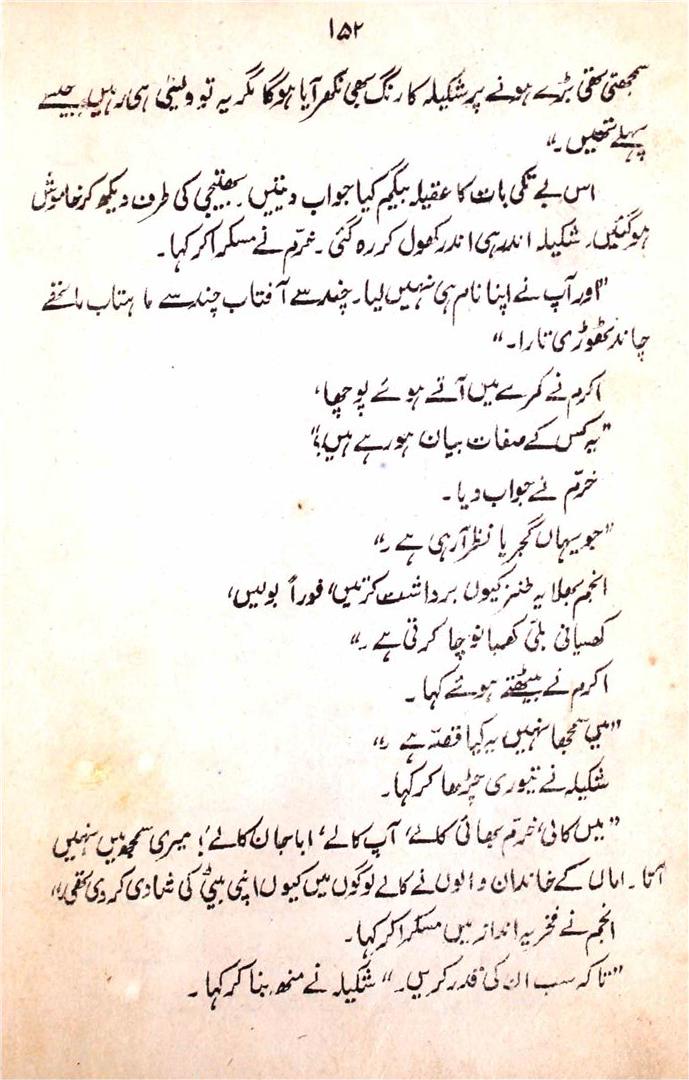 ۱۵۲
سمجھتی تھی بڑے ہونے پر شکیلہ کا رنگ بھی نکھر آیا ہوگا مگر یہ تو ویسی ہی رہیں جیسے
پہلے تھیں۔“
اس بے تکی بات کا عقیلہ بیگم کیا جواب دیتیں بھتیجی کی طرف دیکھ کر خاموش
ہوگئیں۔ شکیلہ اندر ہی اندر کھول کر رہ گئی۔ خرّم نے مسکرا کر کہا۔
”اور آپ نے اپنا نام ہی نہیں لیا۔ چندے آفتاب چندے ماہتاب ماتھے
چاند ٹھوڑی تارا۔“
اکرم نے کمرے میں آتے ہوئے پوچھا،
”یہ کس کے صفات بیان ہو رہے ہیں؟“
خرّم نے جواب دیا۔
”جو یہاں گجریا نظر آرہی ہے۔“
انجم بھلا یہ طنز کیوں برداشت کرتیں، فوراً بولیں،
کھسیانی بلّی کھمبا نوچا کرتی ہے۔“
اکرم نے بیٹھتے ہوئے کہا۔
”میں سمجھا نہیں یہ کیا قصّہ ہے۔“
شکیلہ نے تیوری چڑھا کر کہا۔
”میں کالی، خرّم بھائی کالے، آپ کالے، ابا جان کالے! میری سمجھ میں نہیں
آتا۔ اماں کے خاندان والوں نے کالے لوگوں میں کیوں اپنی بیٹی کی شادی کر دی تھی۔“
انجم نے فخریہ انداز میں مسکرا کر کہا۔
”تاکہ سب ان کی قدر کریں۔“ شکیلہ نے منھ بنا کر کہا۔